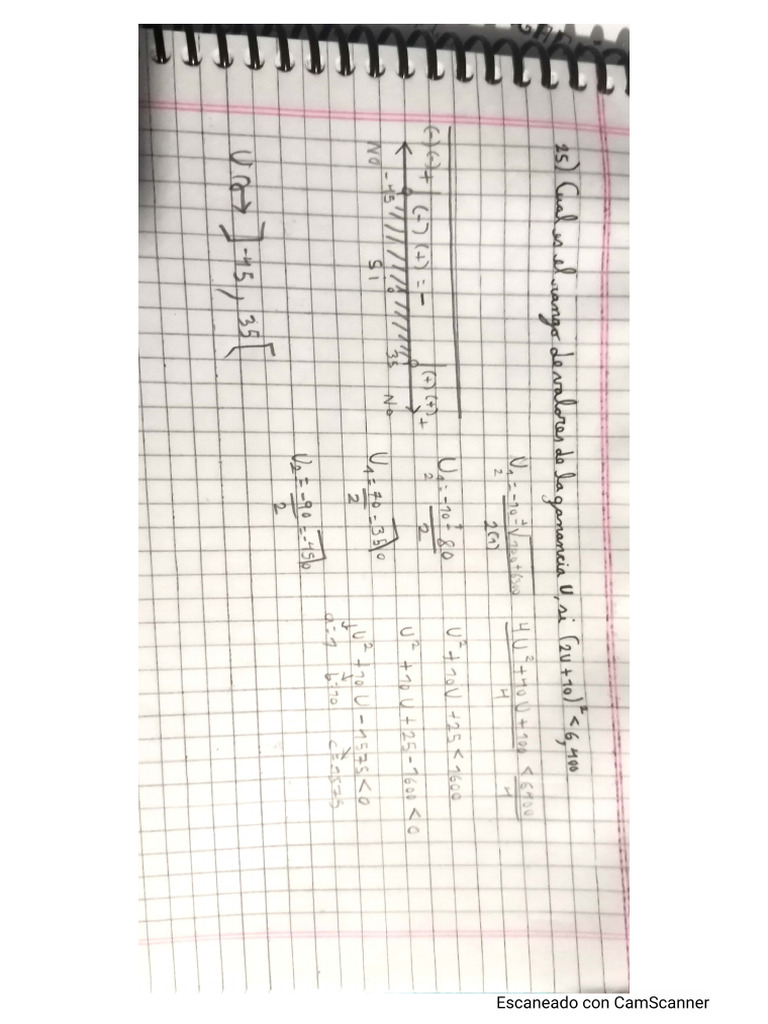 25) Cual es el rango de valores de la ganancia U, si (2U+10)² < 6,400
4U² + 40U + 100 < 6400
4 4
U² + 10U + 25 < 1600
U² + 10U + 25 - 1600 < 0
U² + 10U - 1575 < 0
a=1 b=10 c=-1575
2(1)
U₁ = -10 ± 80
2 2
U₁ = 70 = 35
2
U₂ = -90 = -45
2
(-)(-)+ (-)(+) = - (+)(+)+
-45 0 35
No Si No
U ]-45, 35[
Escaneado con CamScanner